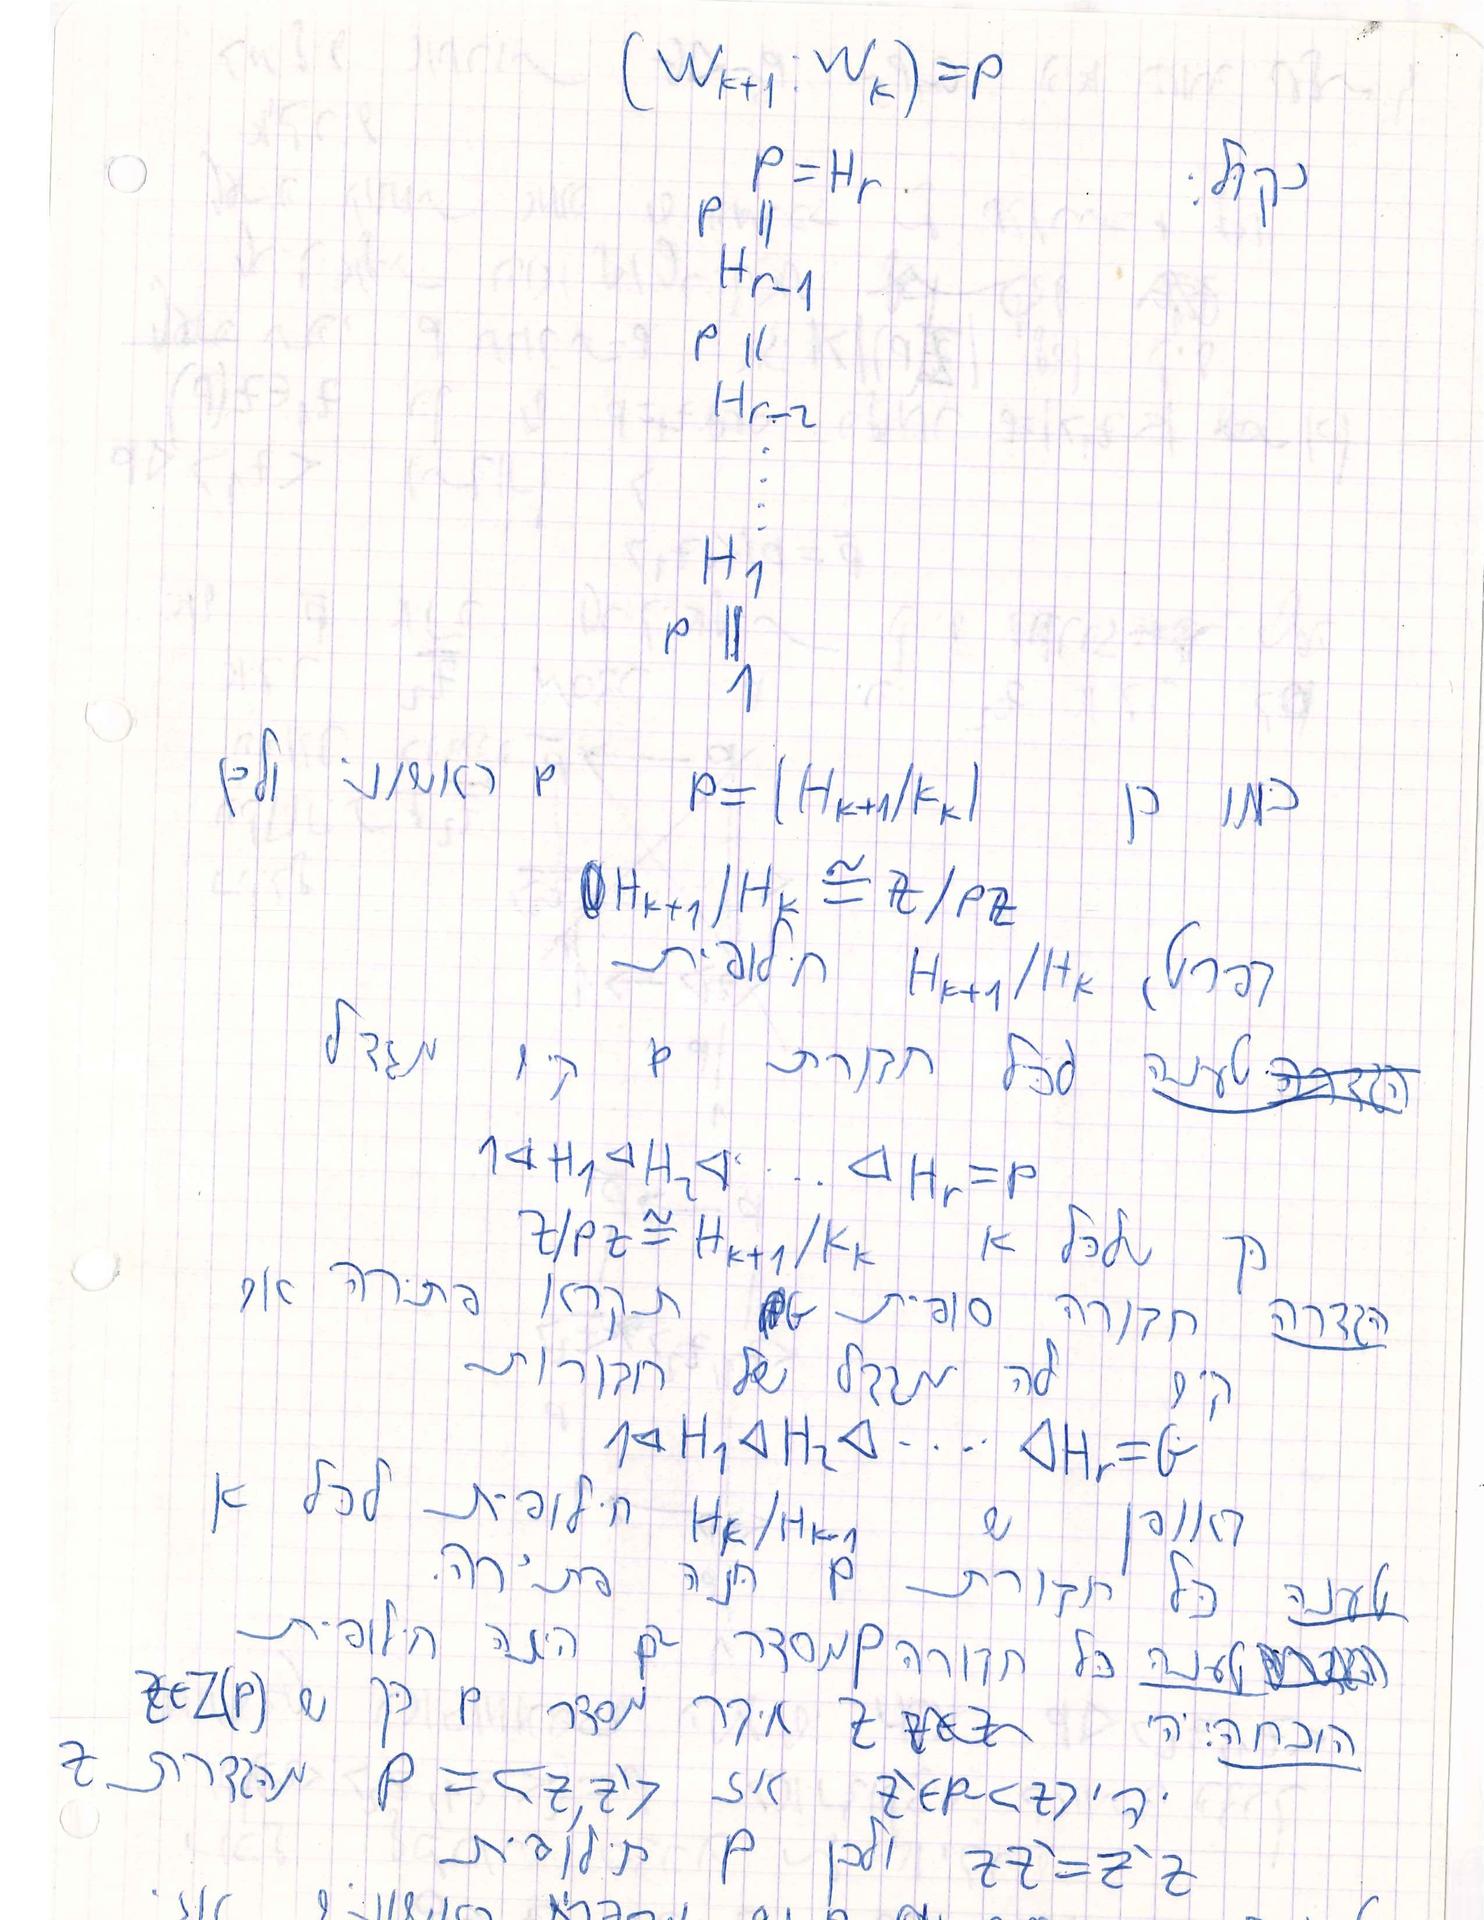 (W_{k+1}:W_k)=p
נקבל: P=H_r
p ||
H_{r-1}
p ||
H_{r-2}
⋮
H_1
p ||
1
כמו כן p=|H_{k+1}/K_k| p ראשוני ולכן
H_{k+1}/H_k ≅ Z/pZ
בפרט, H_{k+1}/H_k חילופית
טענה לכל חבורת p קיים מגדל
1◁H_1◁H_2◁...◁H_r=P
כך שלכל k Z/pZ≅H_{k+1}/K_k
הגדרה חבורה סופית G תקרא פתירה אם
קיים לה מגדל של חבורות
1◁H_1◁H_2◁....◁H_r=G
באופן ש H_k/H_{k-1} חילופית לכל k
טענה כל חבורת p הנה פתירה.
טענה כל חבורה P מסדר p² הינה חילופית
הוכחה: יהי z איבר מסדר p כך ש z∈Z(P)
יהי z'∈P-<z> אז P=<z,z'> מהגדרת z
zz'=z'z ולכן P חילופית